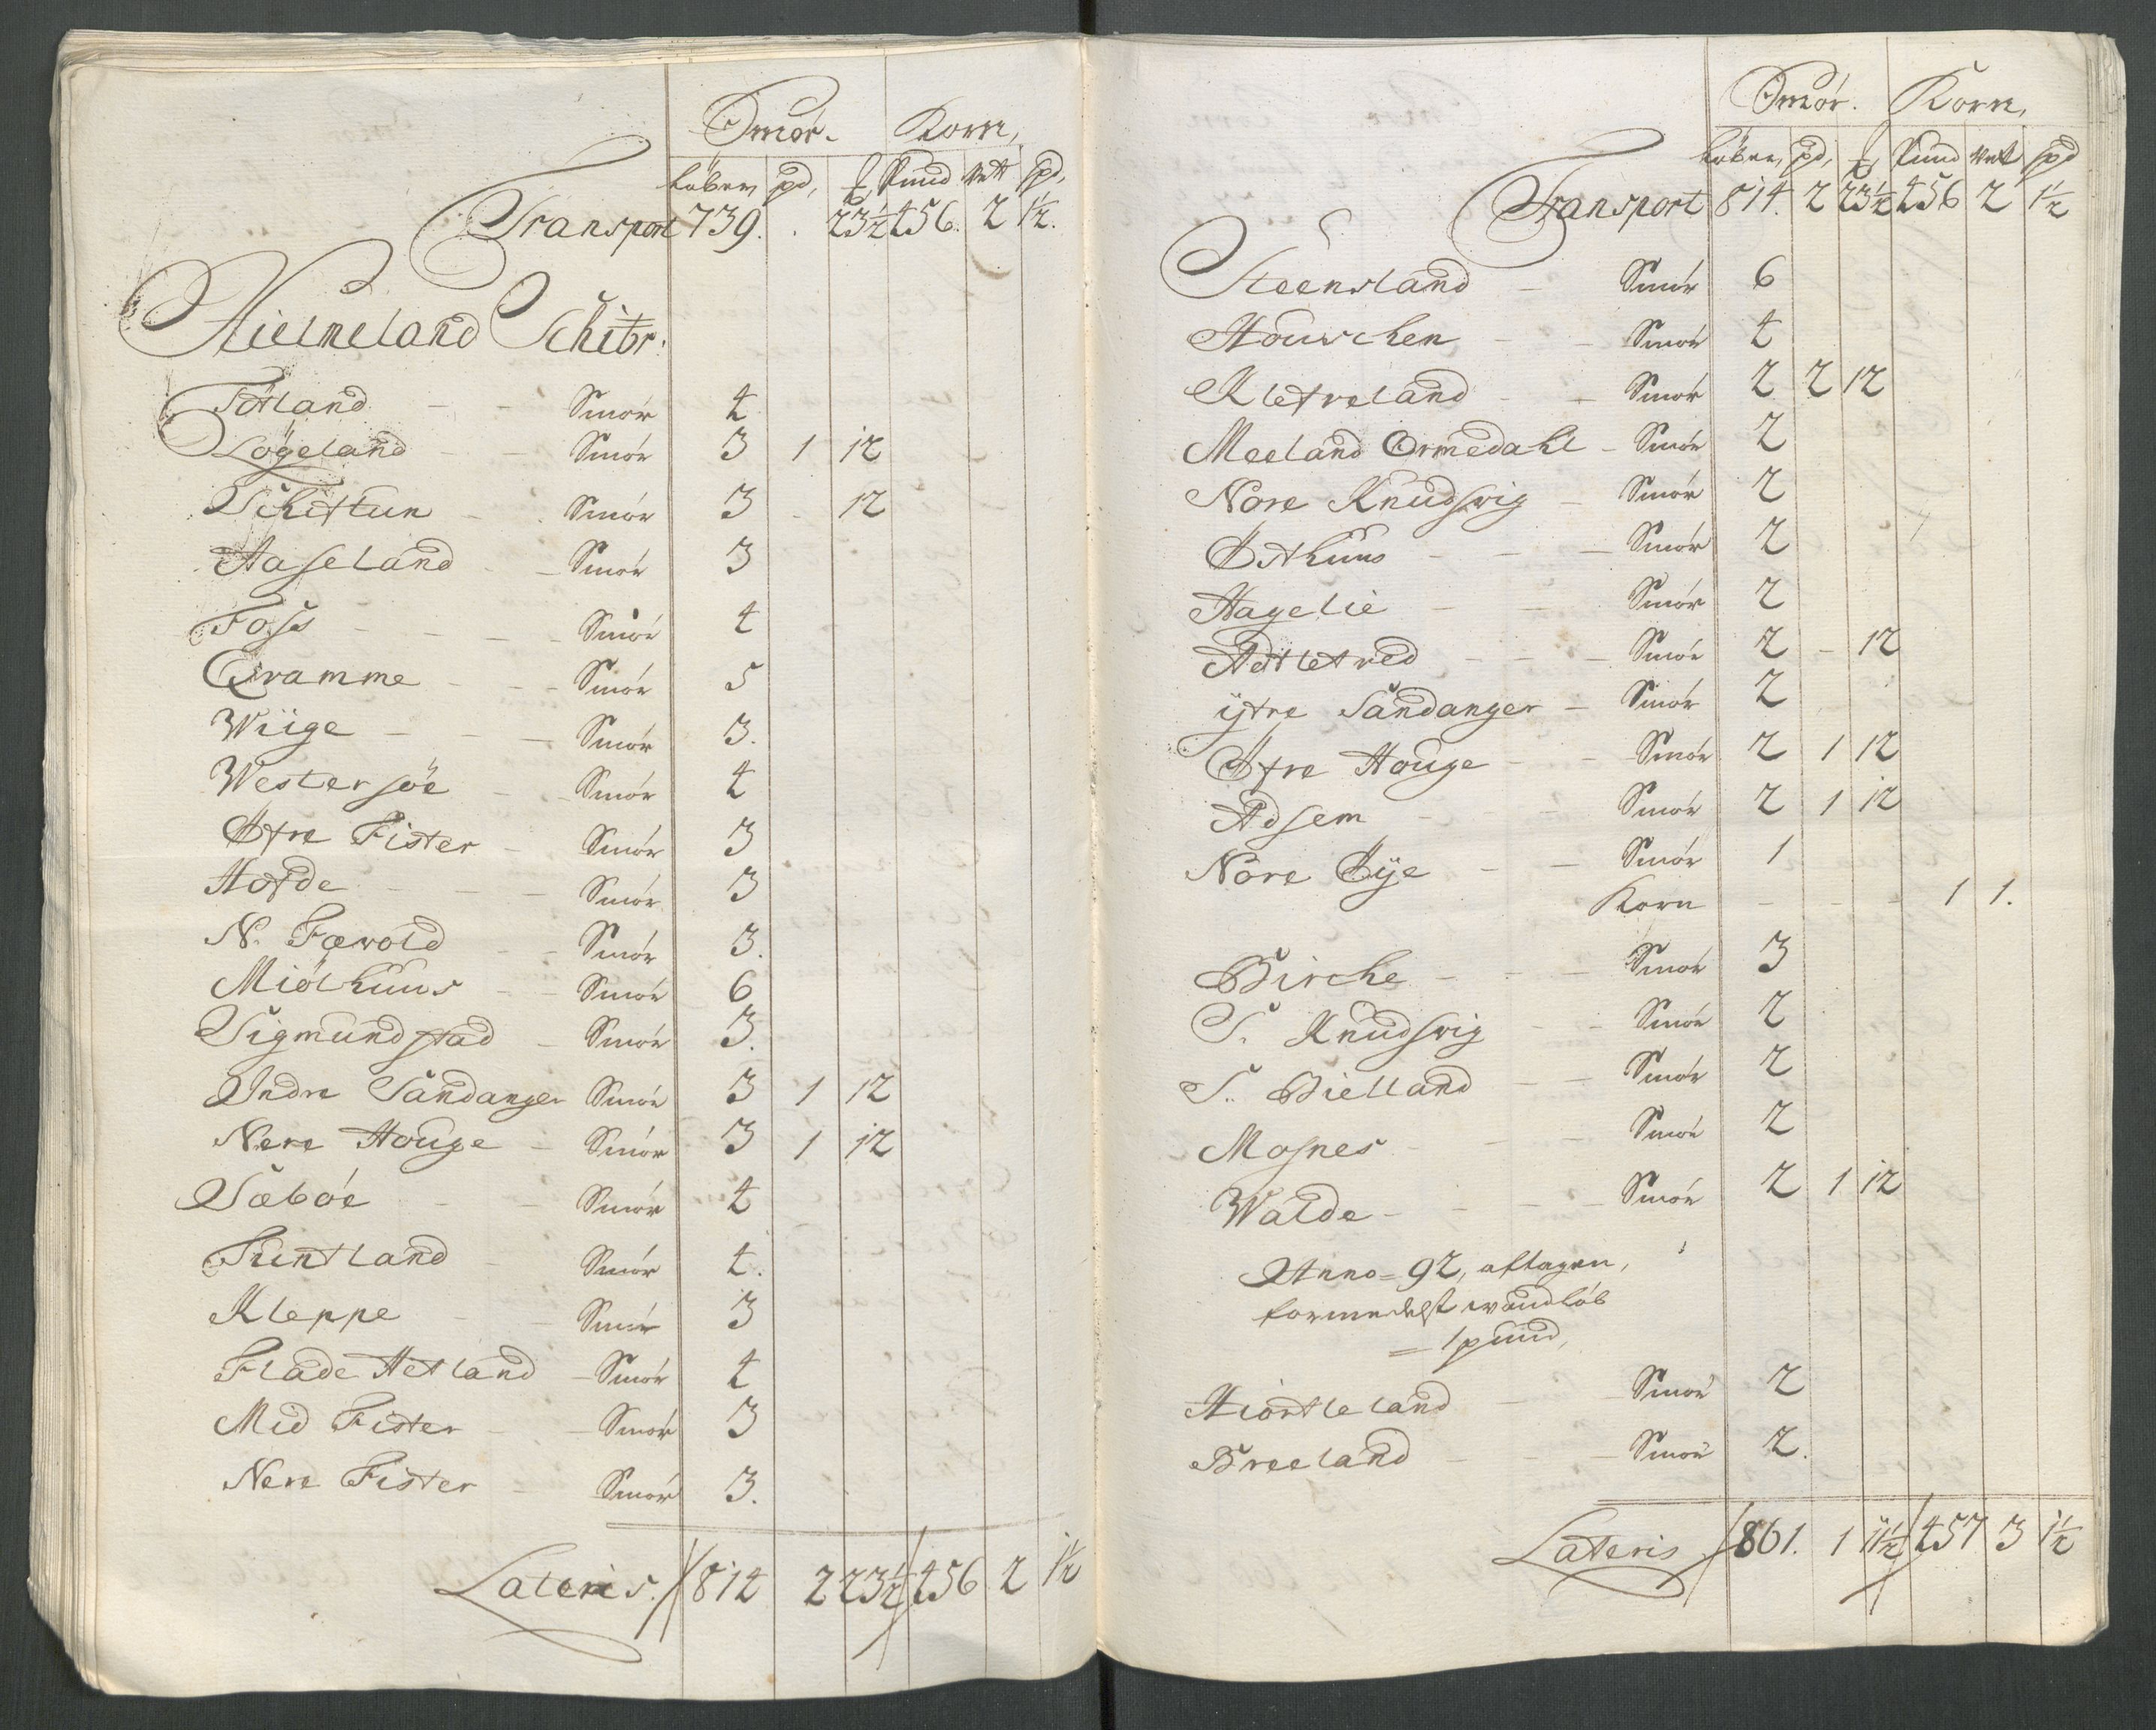 Smör. Korn,
Löber, pd, £, Pund Vett Spd,
Transport 739. . 23½ 456. 2 1½.
Hielmeland Schibr:
Tötland - - Smör 4
Lögeland - - Smör 3 1 12
Schiftun - - Smör 3 - 12
Aaseland - - Smör 3
Foss - - - - Smör 4
Qvamme - - - Smör 5
Wiige - - - Smör 3.
Westersöe - - Smör 4
Øfre Fister - Smör 3
Hofde - - - Smör 3
N. Fævold - - Smör 3.
Miölhuus - - Smör 6
Sigmundstad - Smör 3.
Indre Sandanger Smör 3 1 12
Nere Houge - Smör 3 1 12
Sæböe - - Smör 4
Funtland - Smör 4.
Kleppe - - Smör 3
Flade Hetland - Smör 4
Mid Fister - - Smör 3
Nere Fister - Smör 3.
Lateris. 814 2 23½ 456 2 1½
Smör. Korn,
Löber, pd, £, Pund Vet Spd
Transport 814. 2 23½ 456 2 1½
Steensland - Smör 6
Houschen - - Smör 4
Kletveland - - Smör 2 2 12
Meeland Ormedahl - Smör 2
Nore Knudsvig - Smör 2
Østhuus - - - Smör 2
Hagelie - - Smör 2
Adtletved - - - Smör 2 - 12
ÿtre Sandanger - Smör 2
Øfre Houge - - Smör 2 1 12
Adsem - - - Smör 2 1 12
Nore Øÿe - - Smör 1
Korn - - - 1 1.
Birche - - - Smör 3
S. Knudsvig - - Smör 2
S. Bielland - - Smör 2
Mosnes - - - Smör 2
Walde - - - - Smör 2 1 12
Anno = 92, aftagen,
formedelst wandlöb
= 1 pund,
Hiorteland - - Smör 2
Breeland - - - Smör 2.
Lateris 861. 1 11½ 457 3 1½